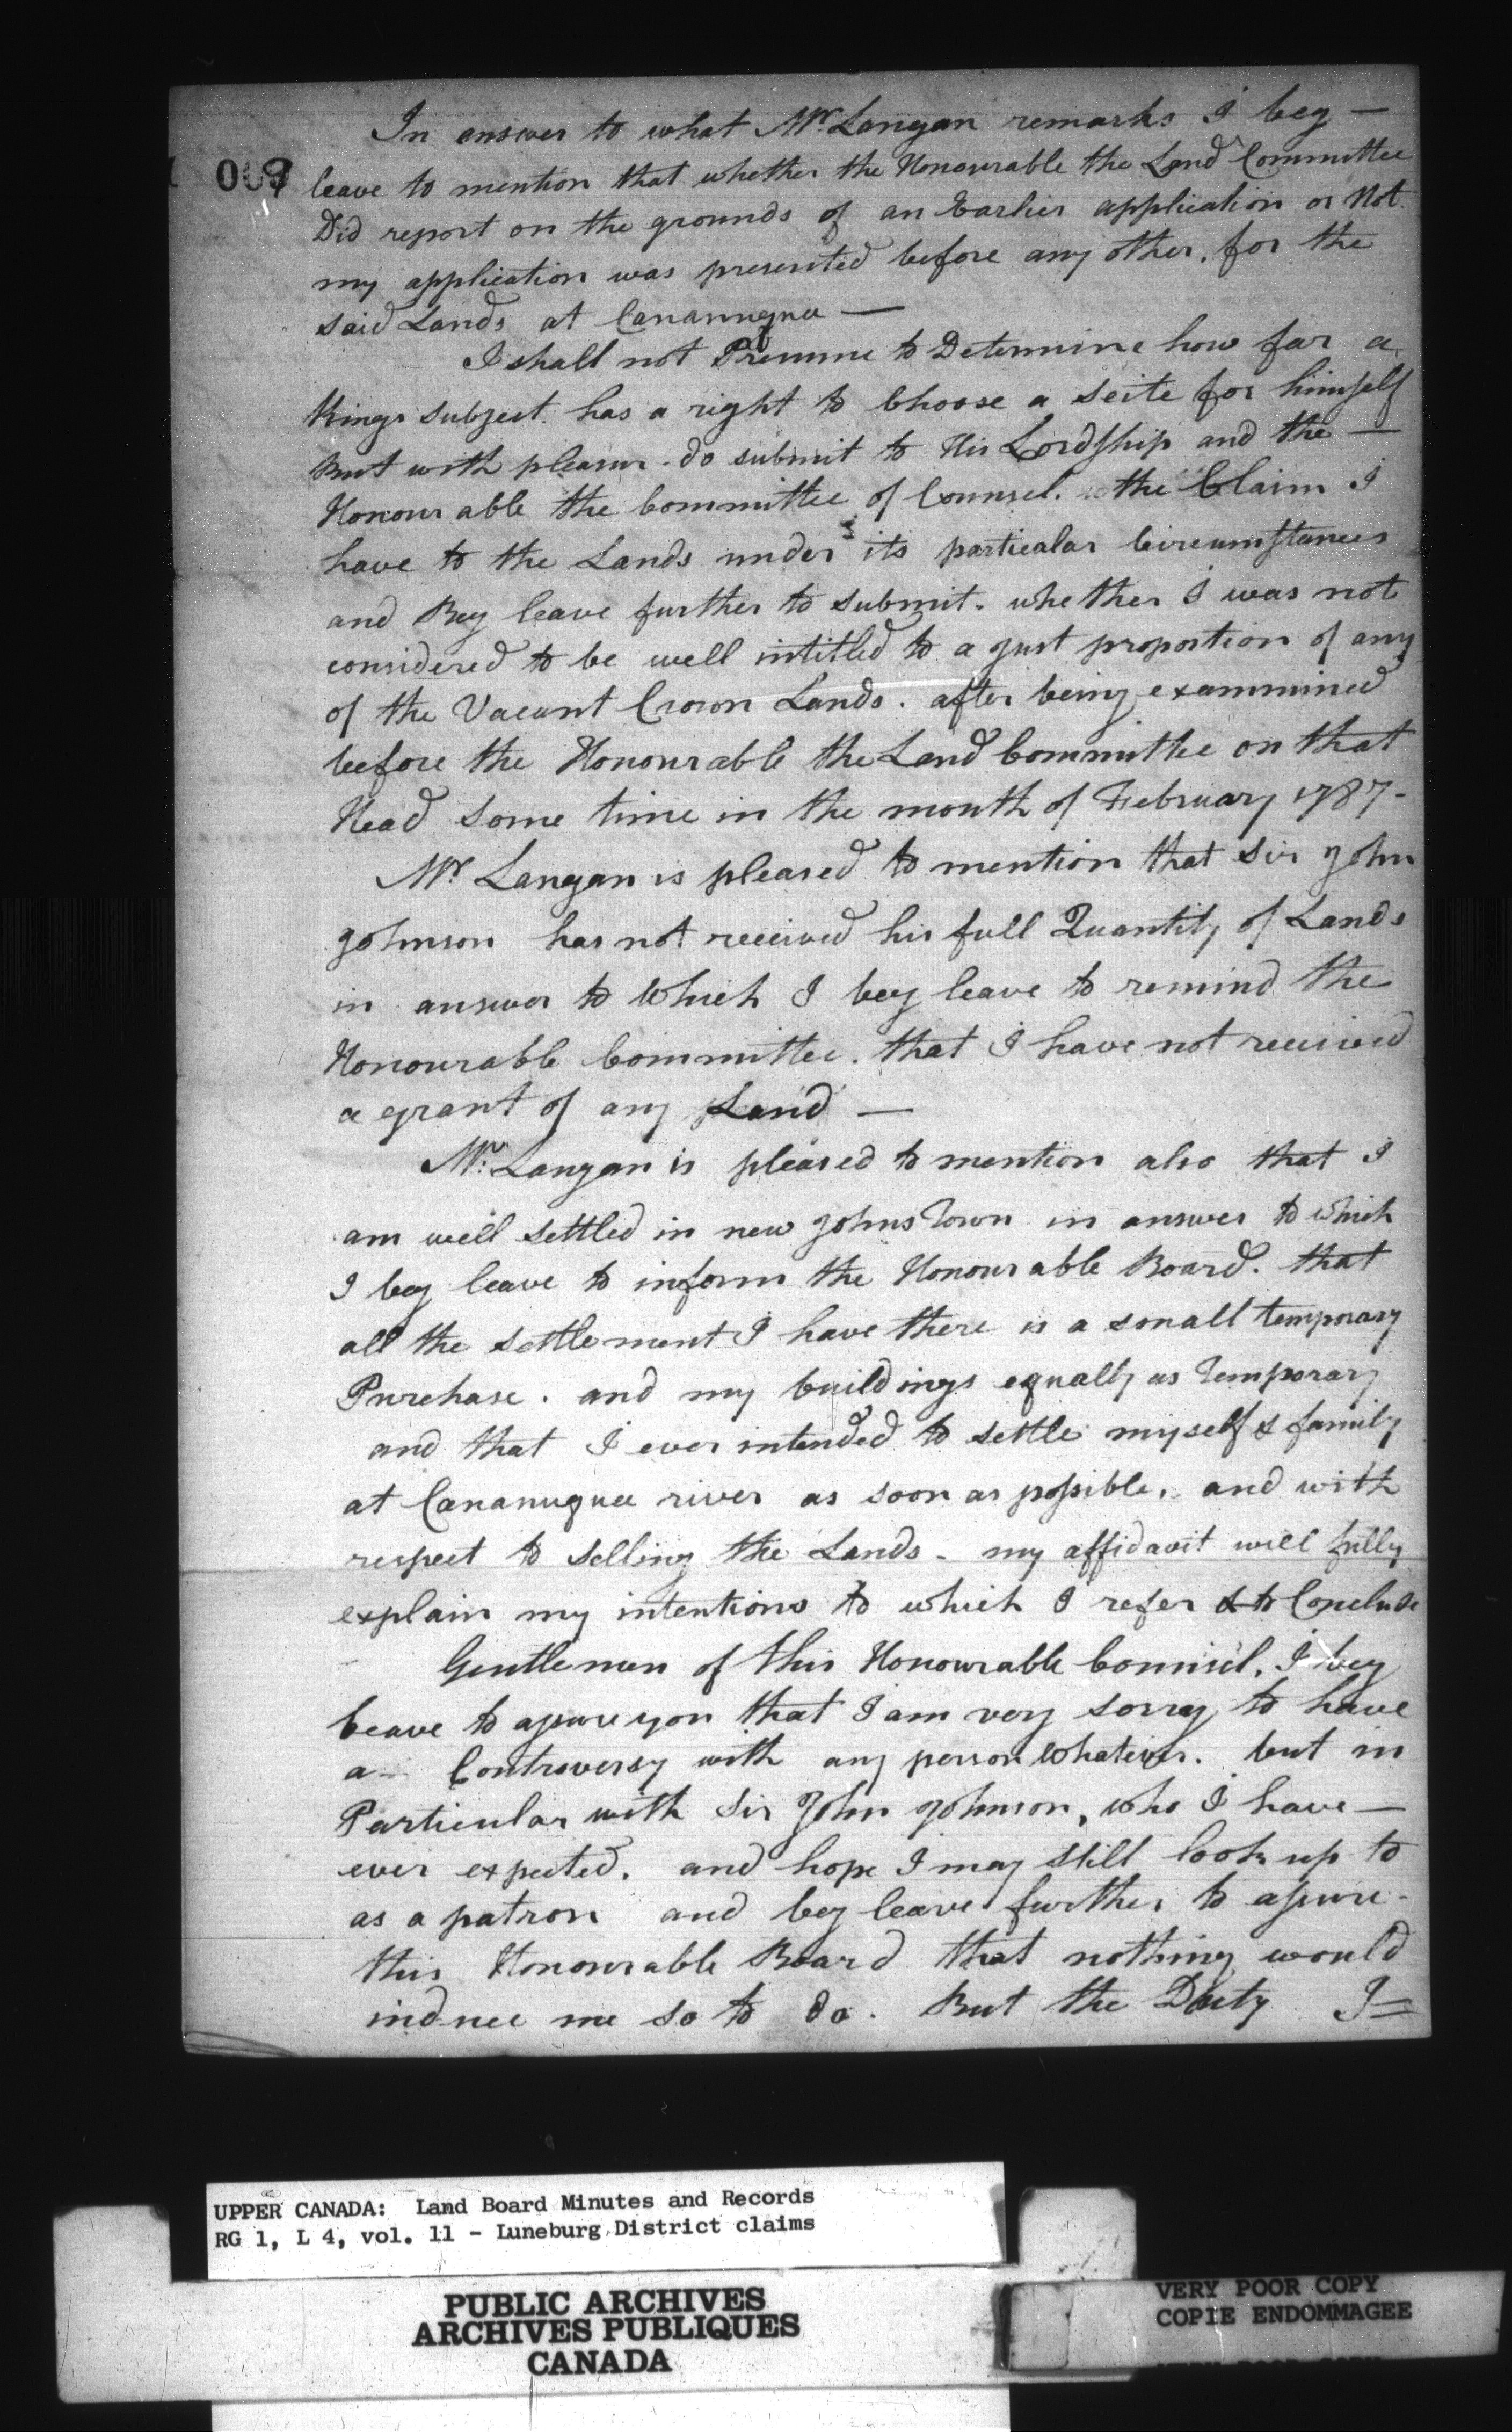 In answer to what Mr. Langan remarks I beg —
009
leave to mention that whether the Honourable the Land Committee
Did report on the grounds of an Earlier application or Not.
my application was presented before any other. for the
said Lands at Cananuqua —
I shall not Presume to Determine how far a
Kings subject. has a right to Choose a seite for himself
But with pleasur - do submit to His Lordship and the —
Honourable the Committee of Counsel. the Claim I
have to the Lands under its particular Circumstances
and Beg leave further to submit. whether I was not
considered to be well intitled to a just proportion of any
of the Vacant Crown Lands. after being exammined
before the Honourable the Land Committee on that
Head some time in the month of February 1787 -
Mr Langan is pleased to mention that Sir John
Johnson has not received his full Quantity of Lands
in answer to Which I beg leave to remind the
Honourable Committee. that I have not received
a grant of any Land —
Mr. Langan is pleased to mention also that I
am well settled in new Johns Town in answer to which
I beg leave to inform the Honourable Board. that
all the settlement I have there is a small temporary
Purchase. and my buildings equally as Temporary
and that I ever intended to settle myself & family
at Cananuquee river as soon as possible. and with
respect to selling the Lands - my affidavit will fully
explain my intentions to which I refer & to Conclude
Gentlemen of this Honourable Counsil. I beg
Leave to assure you that I am very sorry to have
a - Controversy with any person Whatever. but in
Particular with Sir John Johnson, who I have —
ever expected. and hope I may still look up to
as a patron and beg leave further to assure -
this Honourable Board that nothing would
induce me so to do. But the Duty I =
UPPER CANADA: Land Board Minutes and Records
RG 1, L 4, vol. 11 - Luneburg District claims
PUBLIC ARCHIVES
ARCHIVES PUBLIQUES
CANADA
VERY POOR COPY
COPIE ENDOMMAGEE